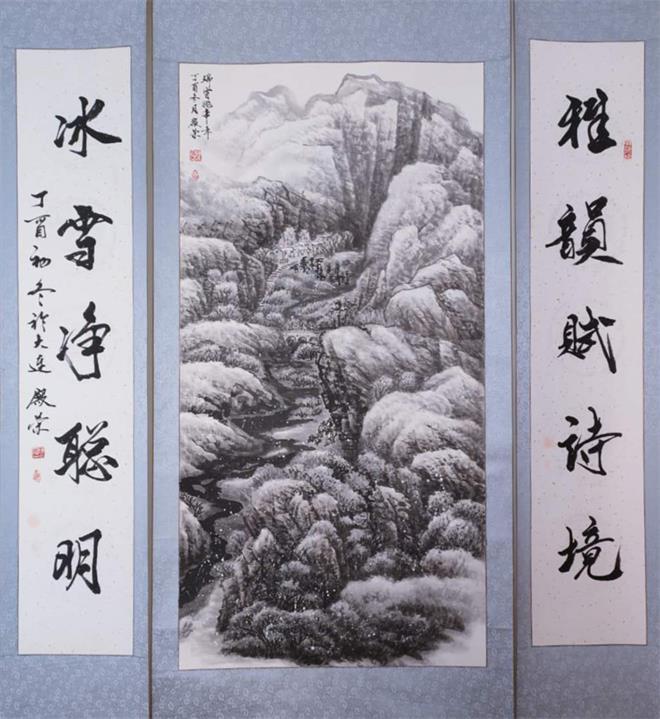 雅韻賦詩境
瑞雪兆丰年
丁酉冬月殿荣
冰雪净聪明
丁酉初冬於大连殿荣